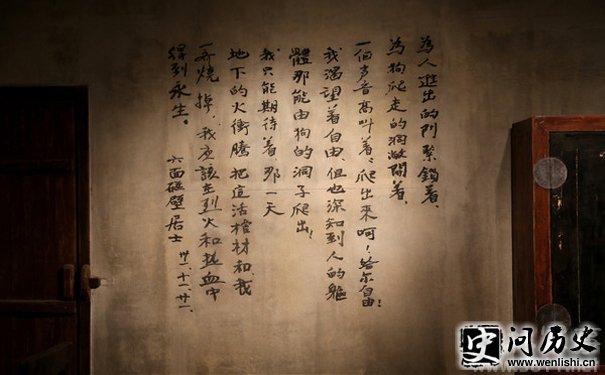 為人進出的门緊鎖着、
為狗爬走的洞敞開着、
一個声音高叫着：爬出來呵！給尔自由！
我渴望着自由、但也深知到人的軀
體那能由狗的洞子爬出！
我只能期待着、那一天
地下的火衝騰把這活棺材和我
一齐燒掉、我应該在烈火和热血中
得到永生。
六面碰壁居士
卅一.十一.廿一.
史 问历史
www.wenlishi.cn